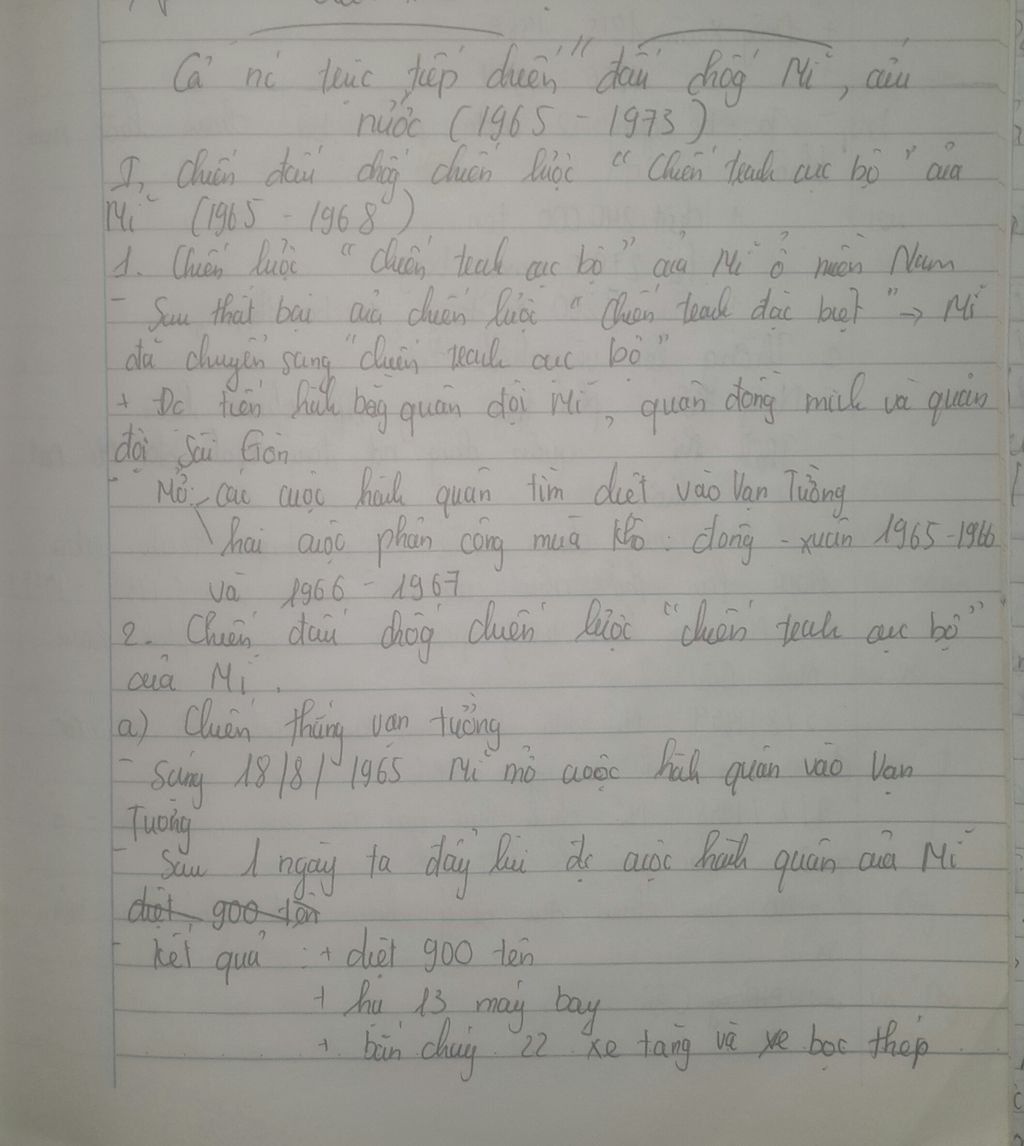 Cả nc trực tiếp chiến đấu chốg Mĩ, cứu
nước (1965 - 1973)
I, Chiến đấu chốg chiến lược "Chiến tranh cục bộ" của
Mĩ (1965 - 1968)
1. Chiến lược "chiến tranh cục bộ" của Mĩ ở miền Nam
- Sau thất bại của chiến lược "Chiến tranh đặc biệt" → Mĩ
đã chuyển sang "chiến tranh cục bộ"
+ Đc tiến hành bằg quân đội Mĩ, quân đồng minh và quân
đội Sài Gòn
- Mở: các cuộc hành quân tìm diệt vào Vạn Tường
hai cuộc phản công mùa khô: đông - xuân 1965-1966
và 1966 - 1967
2. Chiến đấu chốg chiến lược "chiến tranh cục bộ"
của Mĩ.
a) Chiến thắng vạn tường
- Sáng 18/8/1965 Mĩ mở cuộc hành quân vào Vạn
Tường
- Sau 1 ngày ta đẩy lùi đc cuộc hành quân của Mĩ
diệt 900 tên
- Kết quả: + diệt 900 tên
+ hạ 13 máy bay
+ bắn cháy 22 xe tăng và xe bọc thép